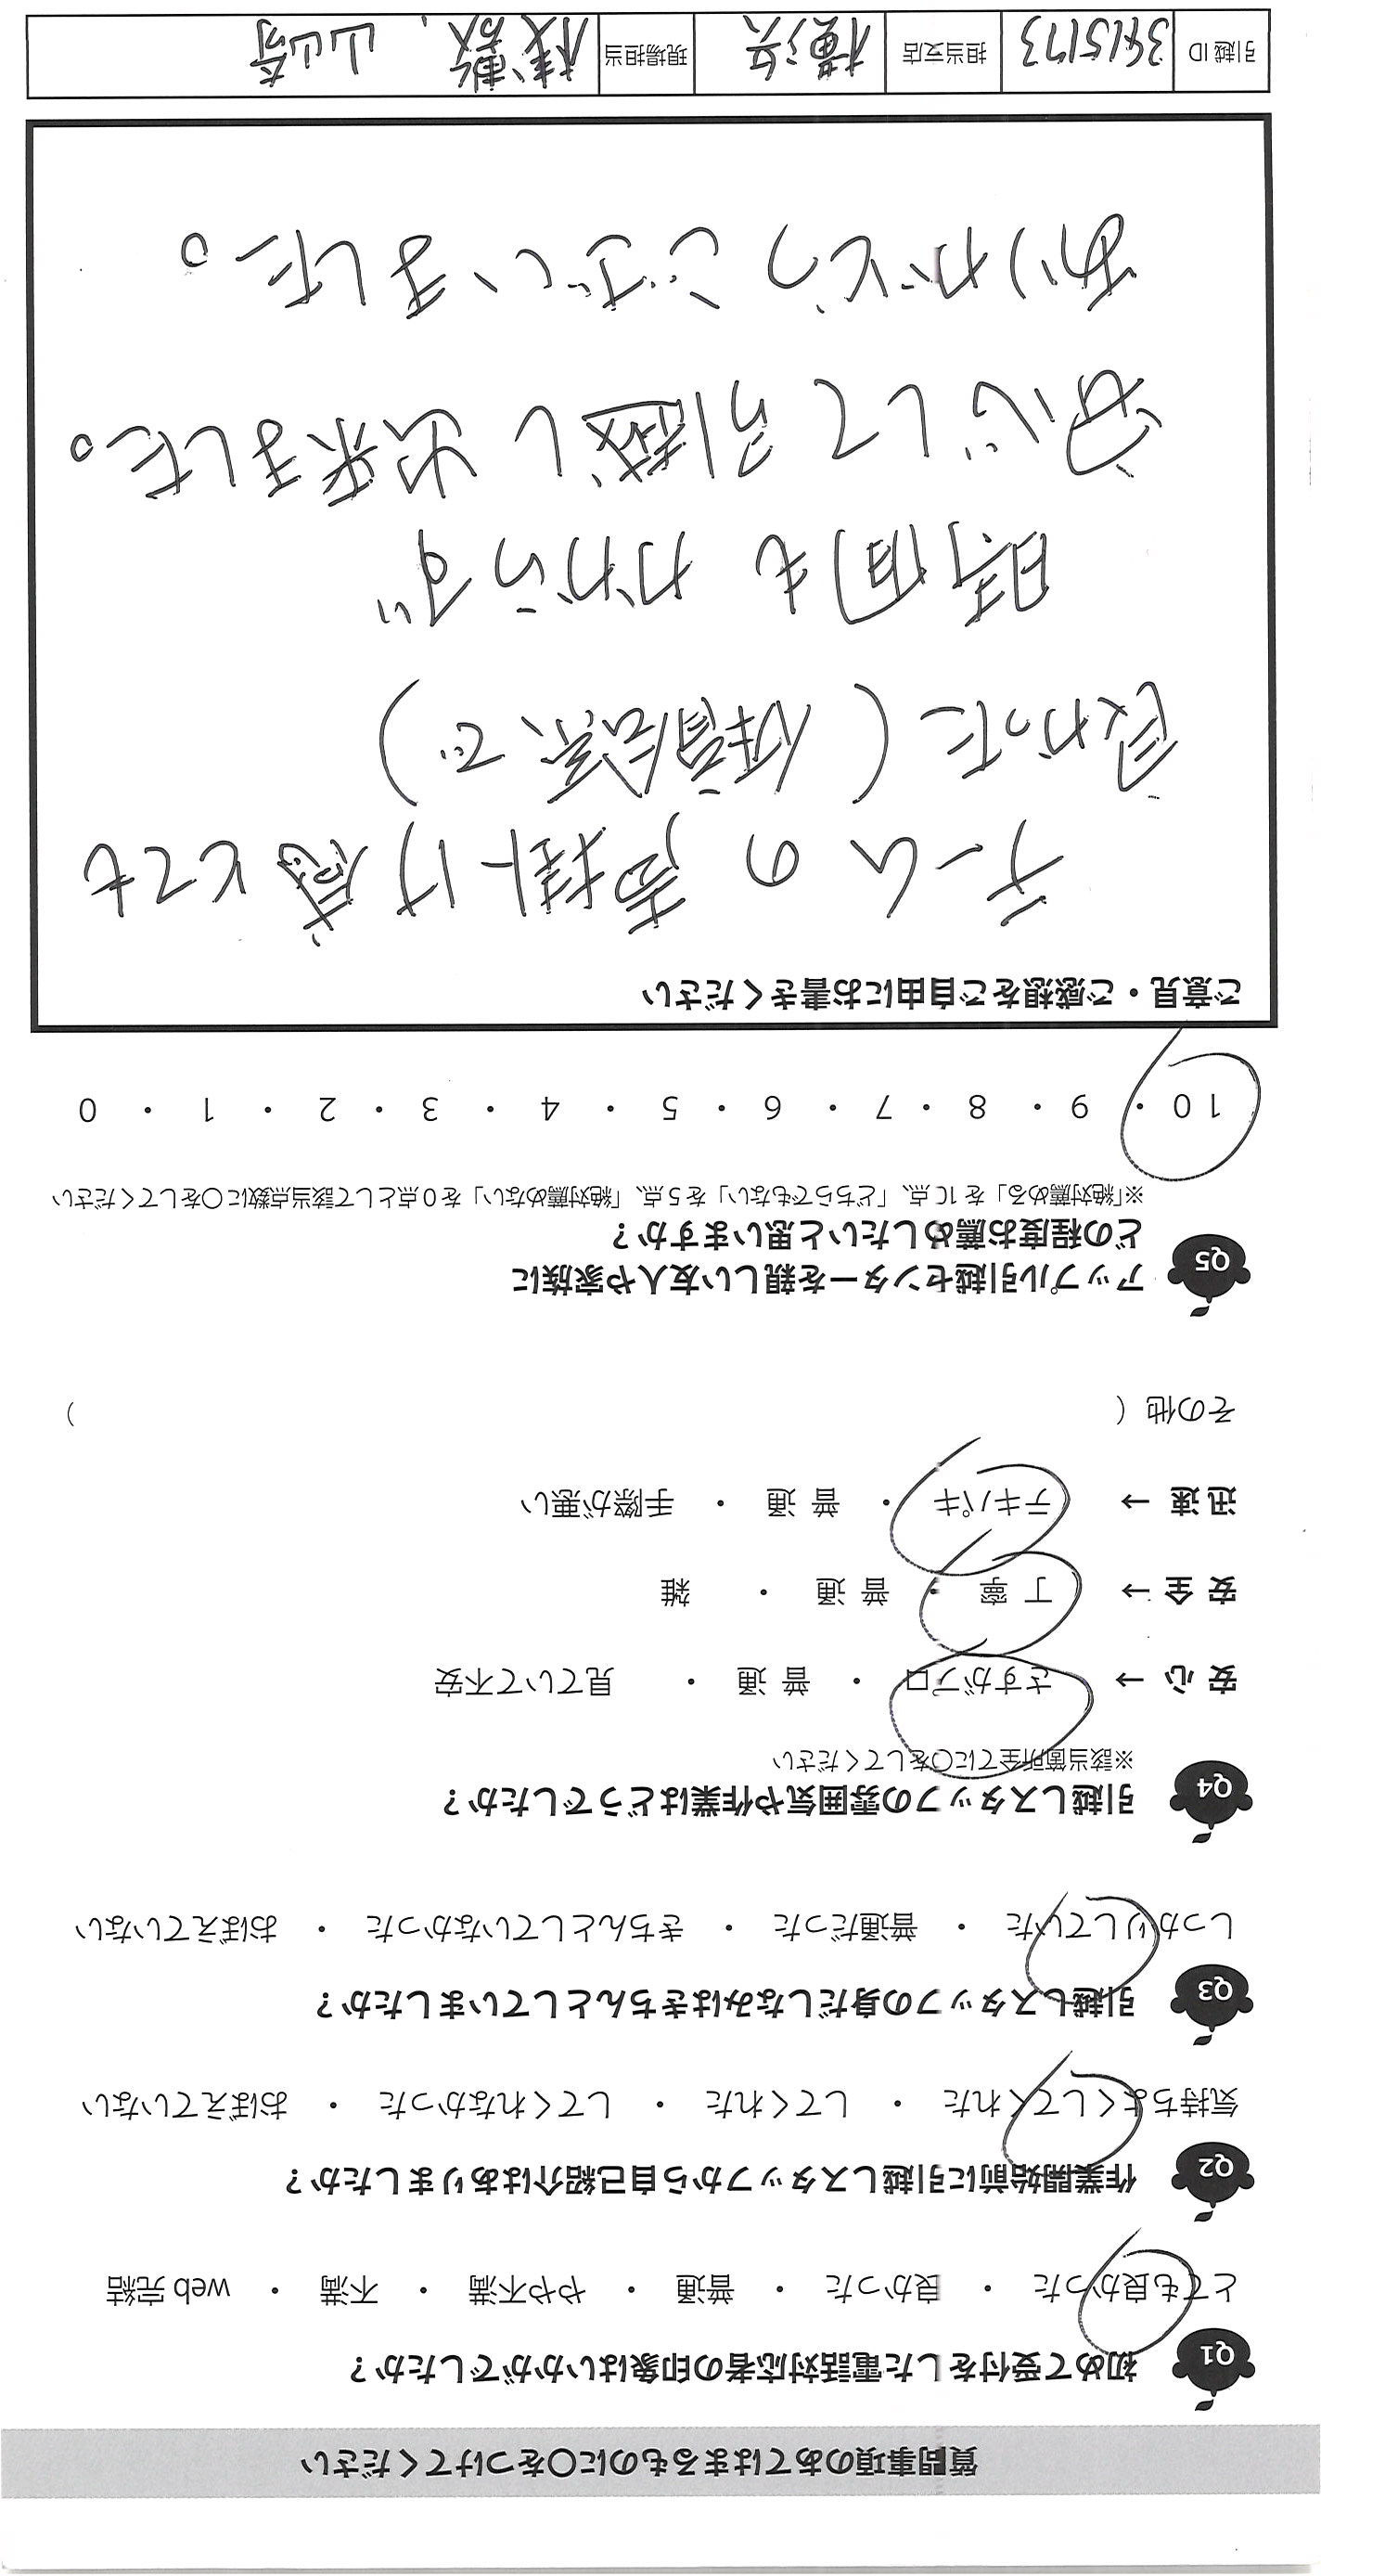 質問事項のあてはまるものに○をつけてください
Q1 初めて受付をした電話対応者の印象はいかがでしたか？
とても良かった ・ 良かった ・ 普通 ・ やや不満 ・ 不満 ・ web 完結
Q2 作業開始前に引越しスタッフから自己紹介はありましたか？
気持ちよくしてくれた ・ してくれた ・ してくれなかった ・ おぼえていない
Q3 引越しスタッフの身だしなみはきちんとしていましたか？
しっかりしていた ・ 普通だった ・ きちんとしていなかった ・ おぼえていない
Q4 引越しスタッフの雰囲気や作業はどうでしたか？
※該当箇所全てに○をしてください
安 心 → さすがプロ ・ 普 通 ・ 見ていて不安
安 全 → 丁 寧 ・ 普 通 ・ 雑
迅 速 → テキパキ ・ 普 通 ・ 手際が悪い
その他（ ）
Q5 アップル引越センターを親しい友人や家族に
どの程度お薦めしたいと思いますか？
※「絶対薦める」を 10点、「どちらでもない」を 5点、「絶対薦めない」を 0点として該当点数に○をしてください
10 ・ 9 ・ 8 ・ 7 ・ 6 ・ 5 ・ 4 ・ 3 ・ 2 ・ 1 ・ 0
ご意見・ご感想をご自由にお書きください
チームの声掛け感とても
良かった（体育会系で）
時間もかからず
安心して引越し出来ました。
ありがとうございました。
引越 ID 3415173 担当支店 横浜 現場担当 山崎